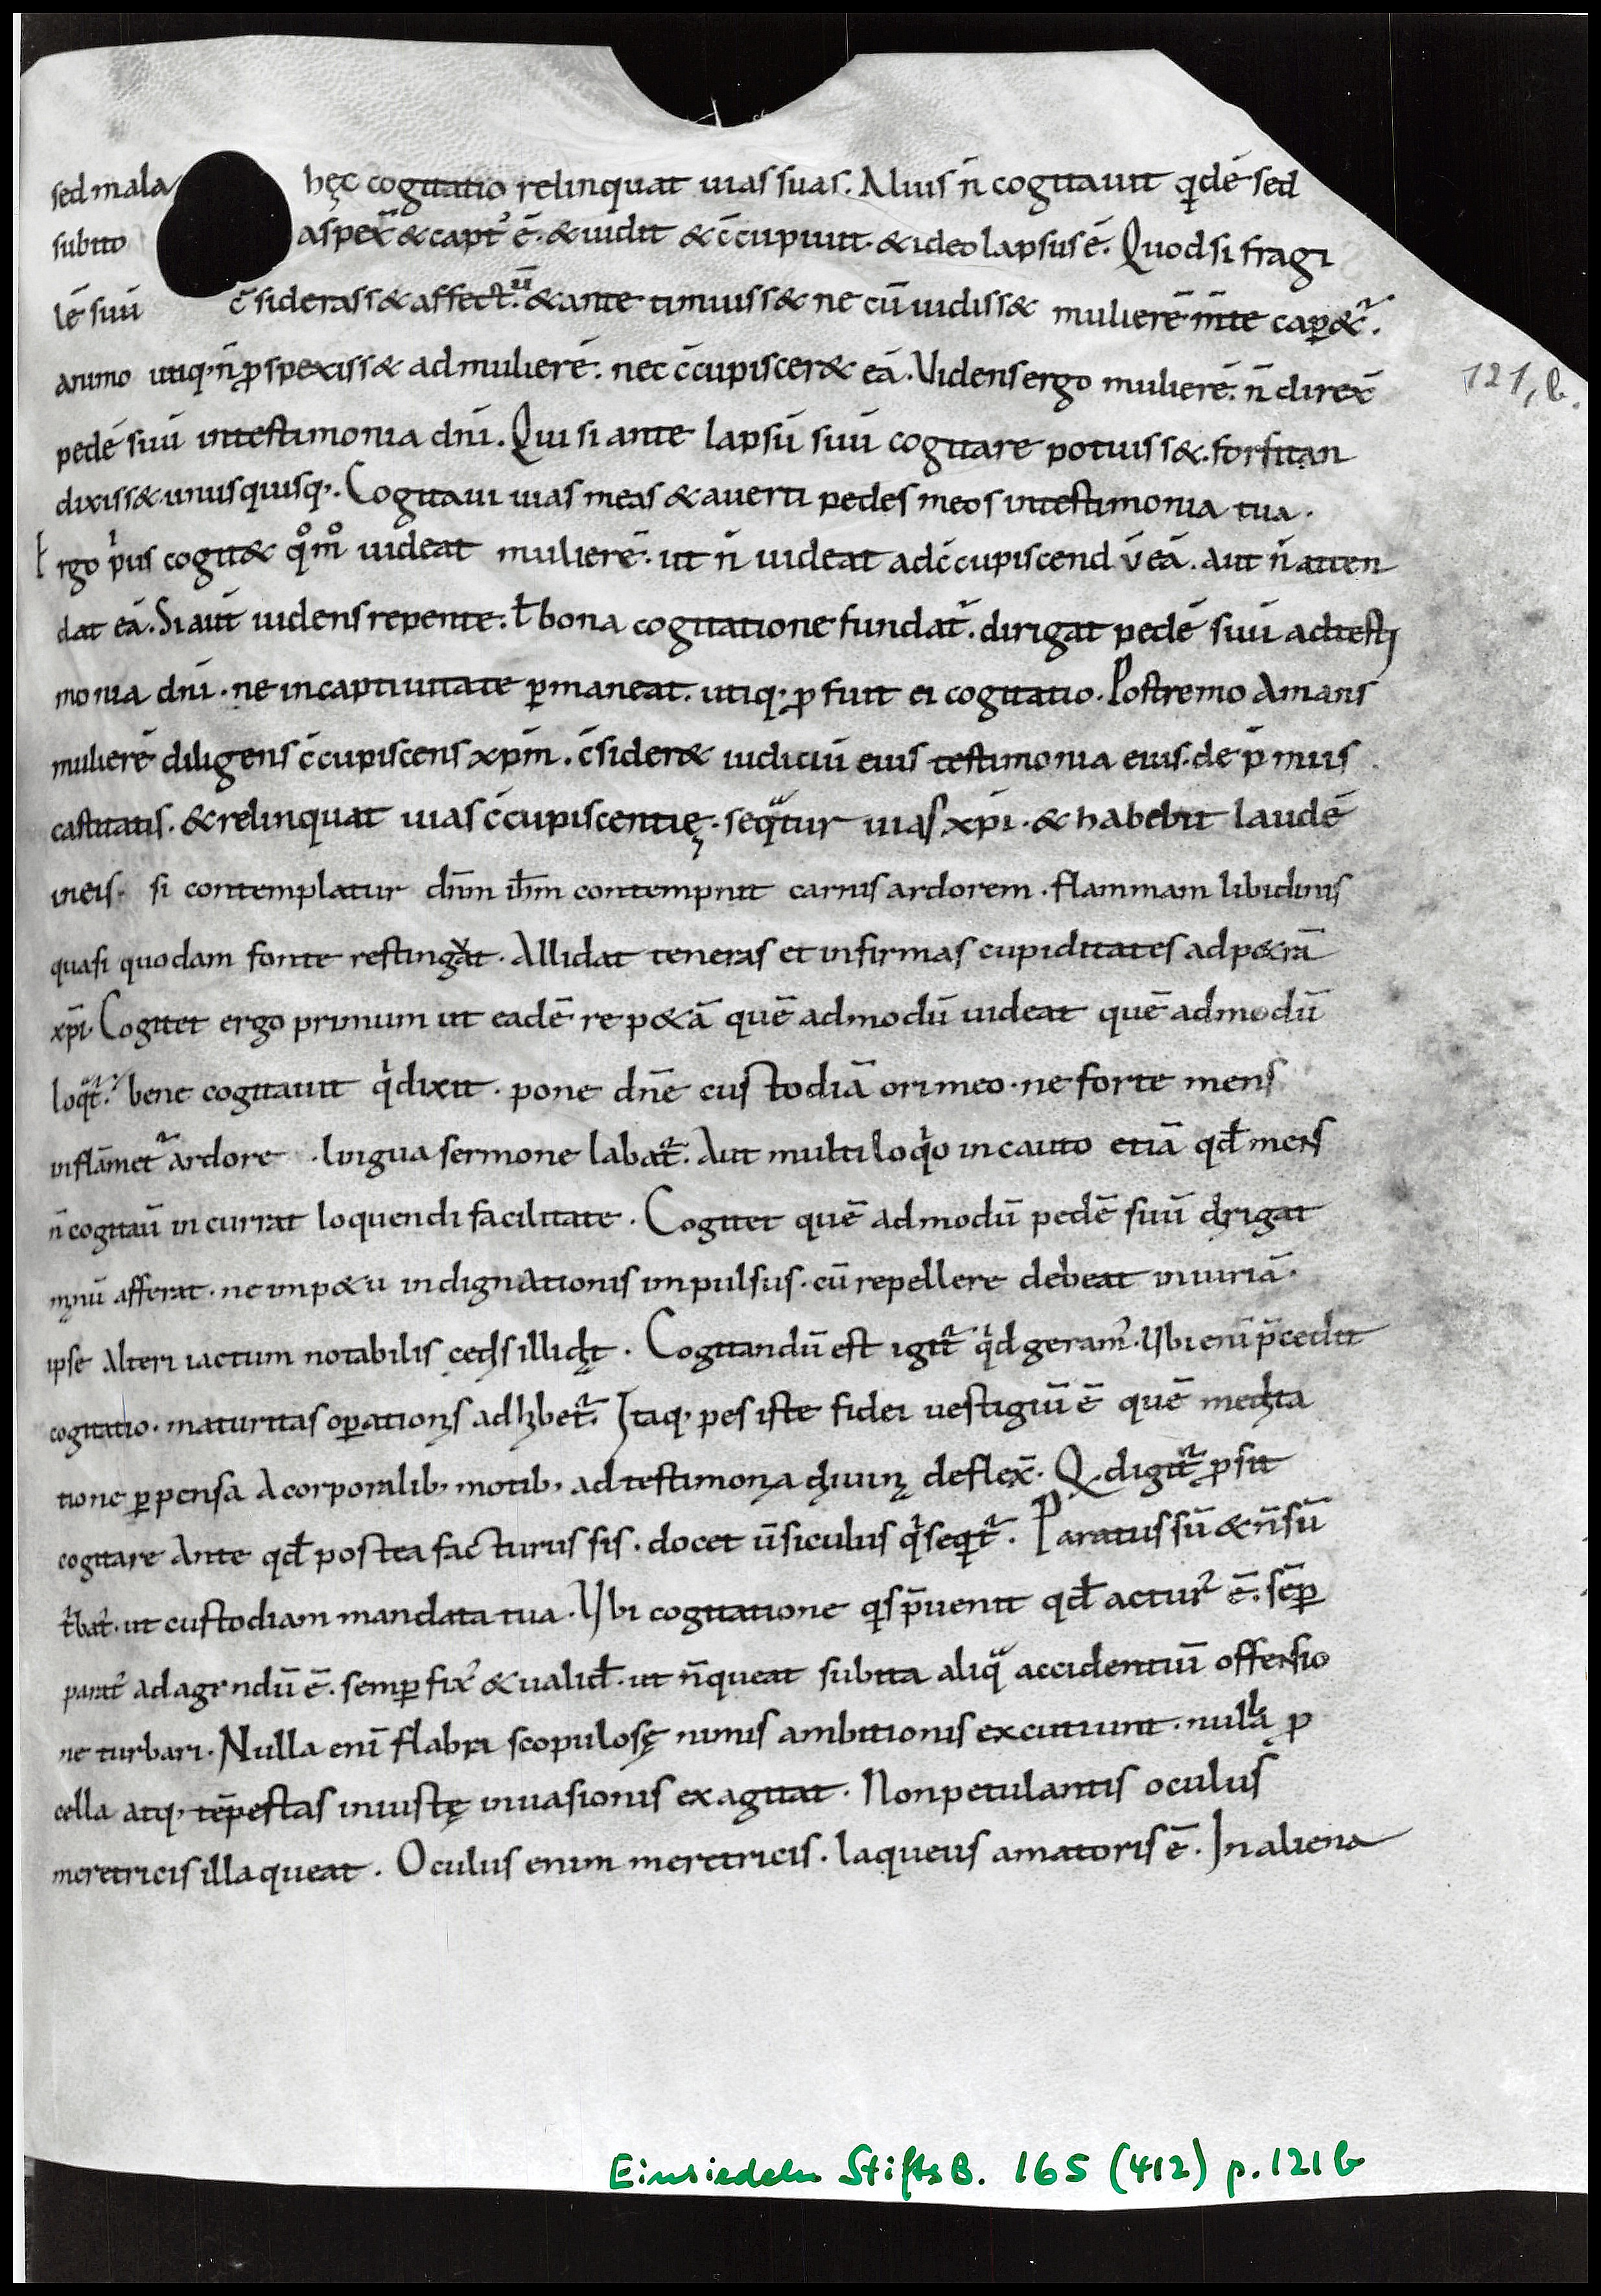 sed mala hęc cogitatio relinquat uias suas. Alius n̄ cogitauit qidē sed
subito aspex̄ & capt᾽ ē. & uidit & c̄cupiuit. & ideo lapsus ē. Quod si fragi
lē suū c̄siderass& affectū. & ante timuiss& ne cū uidiss& mulierē m̄te cap&r̄.
animo utiq; n̄ pspexiss& ad mulierē. nec c̄cupiscer& eā. Videns ergo mulierē. n̄ direx̄
pedē suū in testimonia dnī. Qui si ante lapsū suū cogitare potuiss&. forsitan
dixiss& unusquisq;. Cogitaui uias meas & auerti pedes meos in testimonia tua.
Ergo p̍us cogit& qͦmͦ uideat mulierē. ut n̄ uideat ad c̄cupiscend v̄ eā. aut n̄ atten
dat eā. Si aut̄ uidens repente. ł bona cogitatione fundat̄. dirigat pedē suū ad testi
monia dnī. ne in captiuitate pmaneat. utiq; pfuit ei cogitatio. Postremo amans
mulierē diligens c̄cupiscens xpm̄. c̄sider& iudiciū eius testimonia eius. de p̄miis
castitatis. & relinquat uias c̄cupiscentię. seqͣtur uias xpī. & habebit laudē
in eis. si contemplatur dn̄m ih̄m contempnit carnis ardorem. flammam libidinis
quasi quodam fonte restingat. Allidat teneras et infirmas cupiditates ad p&rā
xpī. Cogitet ergo primum ut eadē rep&ā quē admodū uideat quē admodū
loqͣt̄. bene cogitauit q̍ dixit. pone dn̄e custodiā ori meo. ne forte mens
inflāmet̄ ardore. lingua sermone labat̄. Aut multiloq̍o incauto etiā qđ mens
n̄ cogitaū incurrat loquendi facilitate. Cogitet quē admodū pedē suū dirigat
manū afferat. ne imp&u indignationis impulsus. cū repellere debeat iniuriā.
ipse alteri iactum notabilis cedis illidit. Cogitandū est igit̄ q̍d geram᾽. Vbi eni p̄cedit
cogitatio. maturitas opationis adhibet̄. Itaq; pes iste fidei uestigiū ē quē medita
tione ppensa a corporalib; motib; ad testimonia diuina deflex̄. Qd igit̄ psit
cogitare ante qđ postea facturus sis. docet ūsiculus q̍ seqit̄. Paratus sū & n̄ sū
t̄bat᾽. ut custodiam mandata tua. Vbi cogitatione qis p̄uenit qđ actur᾽ ē. sēp
parat᾽ ad agendū ē. semp fix᾽ & ualid᾽. ut n̄ queat subita aliqͣ accidentiū offensio
ne turbari. Nulla enī flabra scopulosę nimis ambitionis excutiunt. nulla p
cella atq; tēpestas iniustę inuasionis exagitat. Non petulantis oculus
meretricis illaqueat. Oculus enim meretricis. laqueus amatoris ē. In aliena
121, b.
Einsiedeln StiftsB. 165 (412) p. 121b